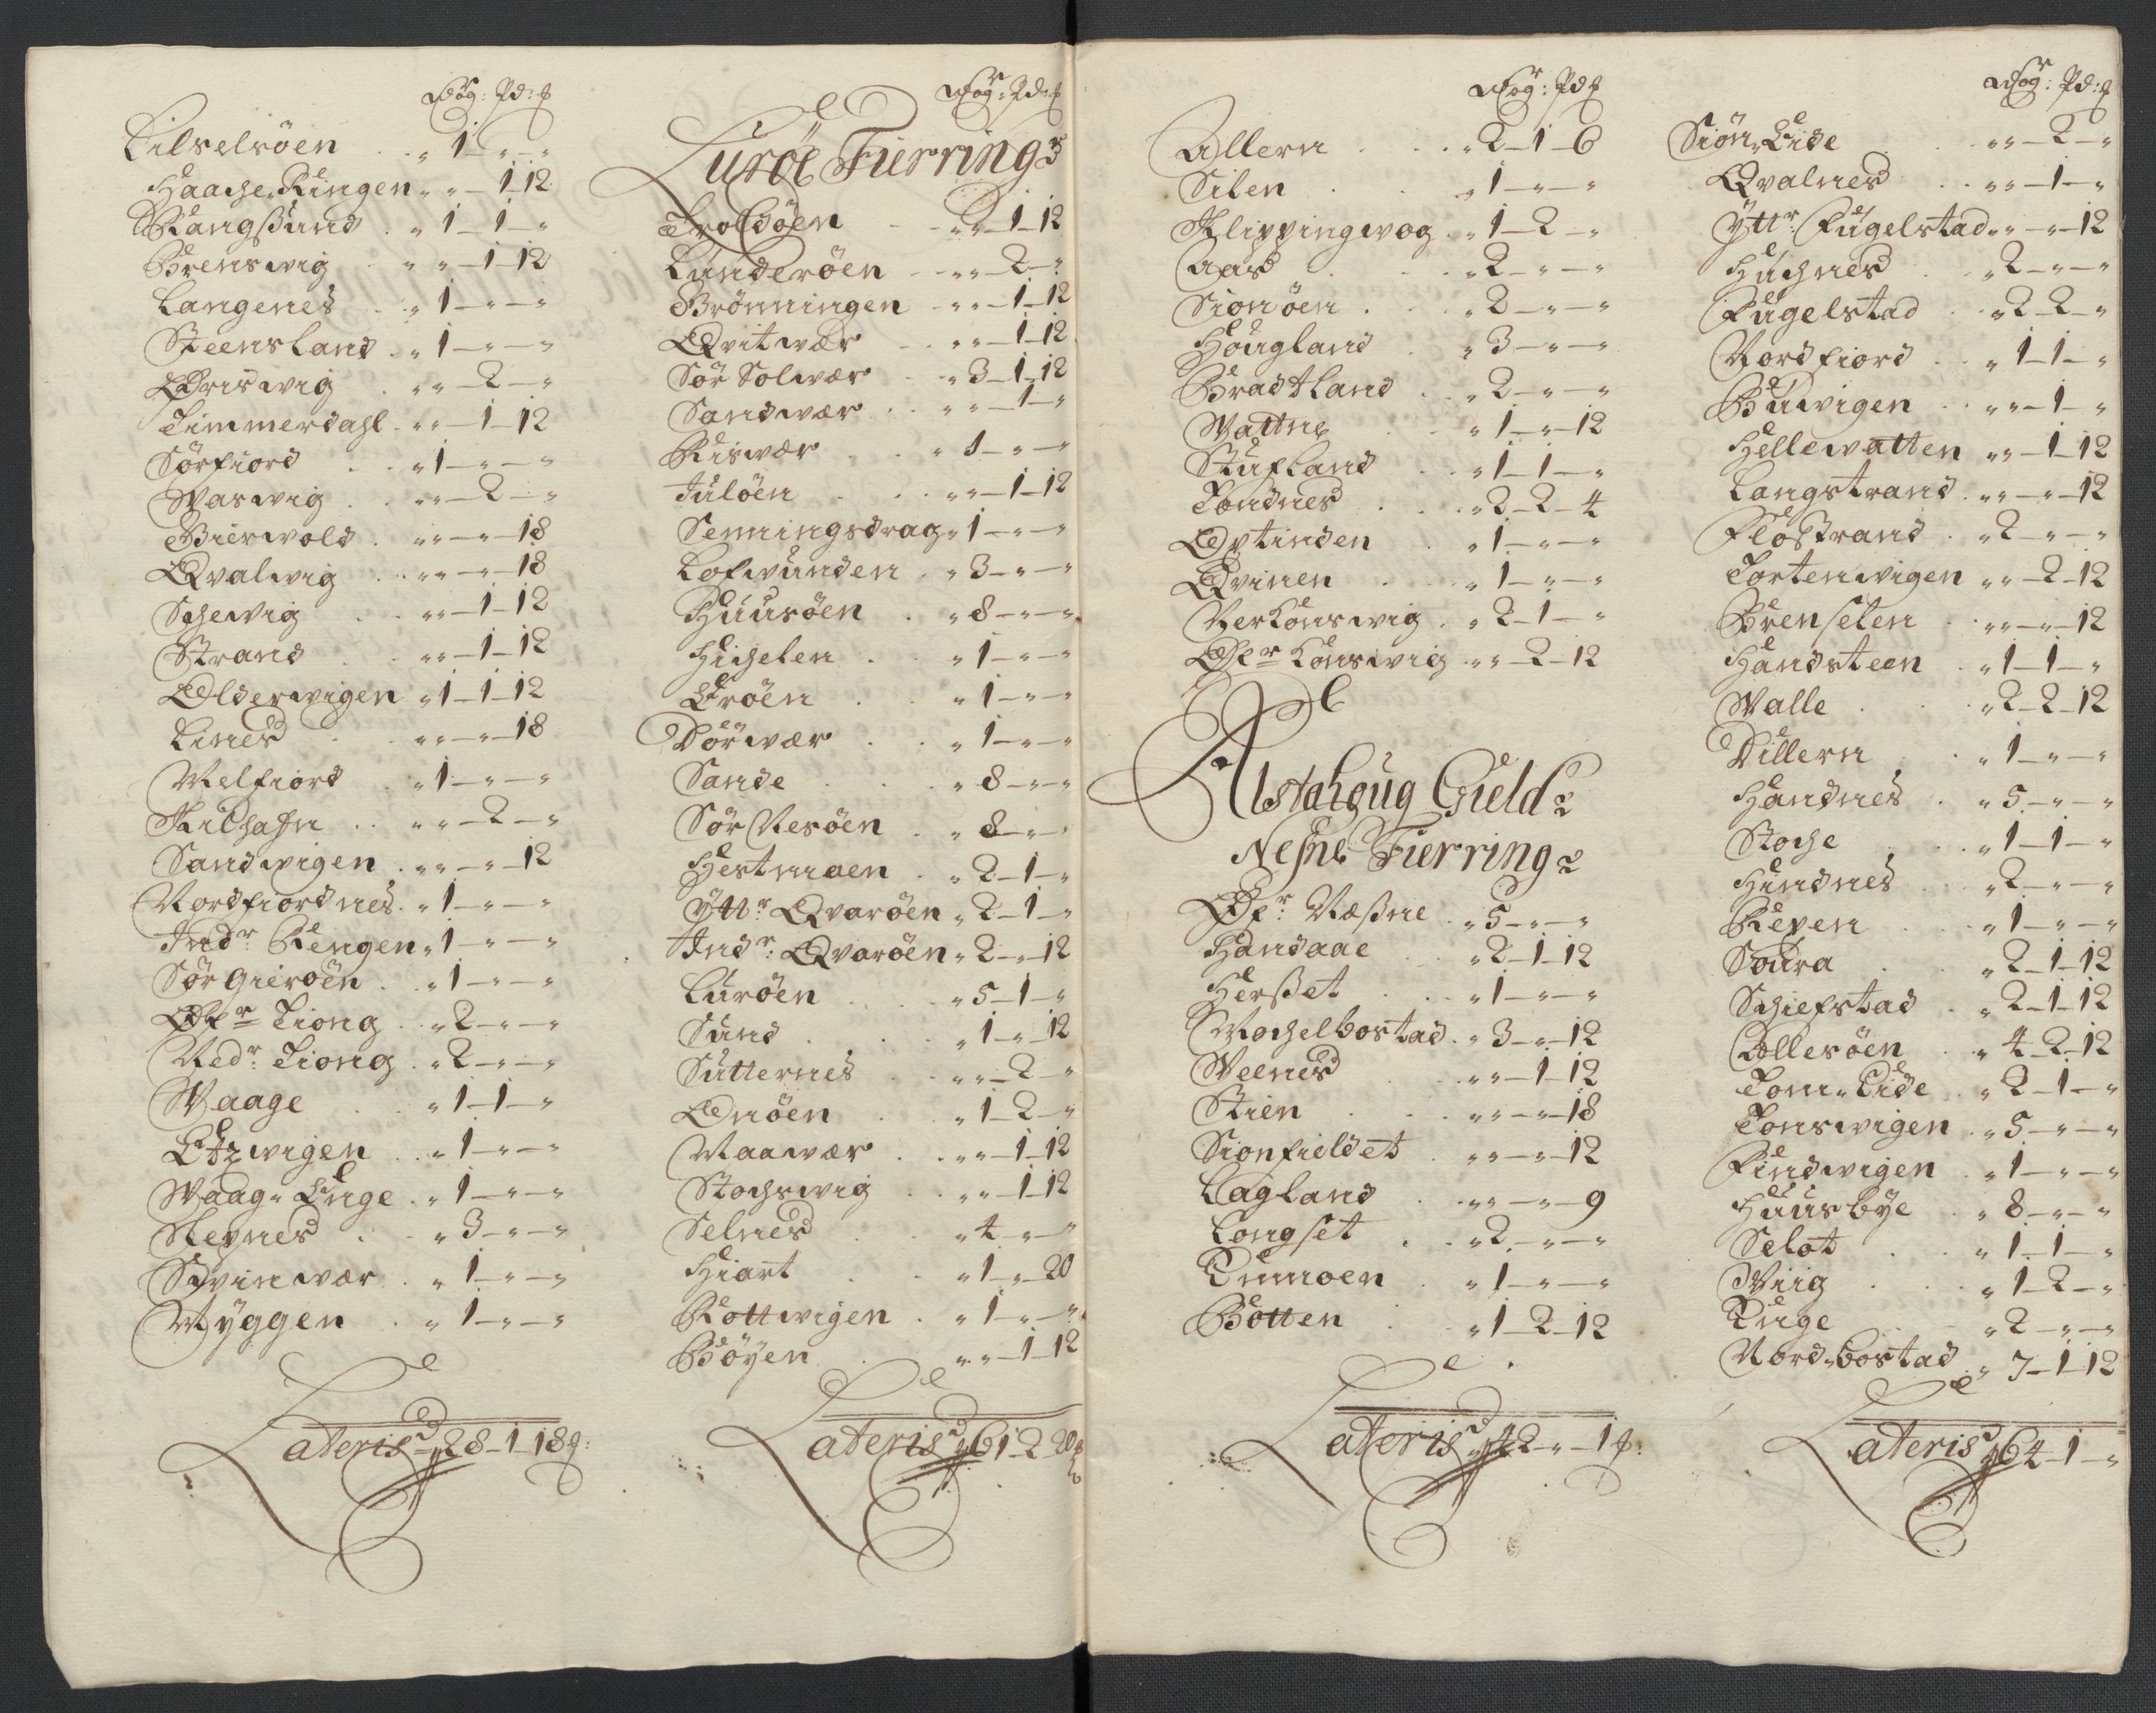 Wog: Pd: ℔
Lilselsöen . . „ 1 – „ – „
Haache Ringen „ „ – 1 12
Rangßund . „ 1 – 1 – „
Brenswig „ „ – 1 – 12
Langenes . „ 1 – „ – „
Steensland . „ 1 – „ – „
Øriswig „ „ – 2 – „
Timmerdahl . „ „ – 1 – 12
Sörfiord . „ 1 – „ – „
Waswig . „ „ – 2 – „
Bierwold . „ „ – „ – 18
Qvalwig . „ „ – „ – 18
Schewig „ „ – 1 – 12
Strand . „ „ – 1 – 12
Olderwigen „ 1 – 1 – 12
Lines . „ „ – „ – 18
Melfiord „ 1 – „ – „
Kilhafn . . „ „ – 2 – „
Sandwigen . „ „ – „ – 12
Nordfiordnes . „ 1 – „ – „
Indr: Rengen „ 1 – „ – „
Sör gieröen . „ 1 – „ – „
Øfr Tiong . „ 2 – „ – „
Nedr: Tiong . „ 2 – „ – „
Waage „ 1 – 1 – „
Etzwigen . „ 1 – „ – „
Waag Enge . „ 1 – „ – „
Stepnes . „ 3 – „ – „
Svinwær . „ 1 – „ – „
Myggen . „ 1 – „ – „
Lateris 28 – 1 18 ℔:
Wog: Pd: ℔
Luröe Fierring
Troldöen – „ „ – 1 – 12
Lunderöen – „ „ – 2 – „
Brönningen – „ „ – 1 – 12
Qvitwær „ „ – 1 – 12
Sör Solwær „ 3 – 1 – 12
Sandwær . . „ „ – 1 – „
Riswær . „ 1 – „ – „
Julöen . . „ „ – 1 – 12
Senningsdrag „ 1 – „ – „
Lofwunden . „ 3 – „ – „
Huusöen . „ 8 – „ – „
Hichelen . „ 1 – „ – „
Eröen . „ 1 – „ – „
Dörwær . . „ 1 – „ – „
Sande . „ 8 – „ – „
Sör Nesöen . „ 8 – „ – „
Hestmoen . „ 2 – 1 – „
Yttr: Qvaröen „ 2 – 1 – „
Indr: Qvaröen „ 2 – „ 12
Luröen . . „ 5 – 1 – „
Sund . . „ 1 – „ 12
Sutternes . „ „ – 2 – „
Onöen . „ 1 – 2 – „
Maawær . . „ „ – 1 – 12
Stochswig . „ „ – 1 12
Selnes . „ 4 – „ – „
Hiart . „ 1 – „ – 20
Rottwigen . „ 1 – „ – „
Böyen . „ „ – 1 – 12
Lateris 61 – 2 20 ℔
Wogr: Pd ℔
Allern . . . „ 2 – 1 – 6
Silen . . „ 1 – „ – „
Klippingwog . „ 1 – 2 – „
Aas . . „ 2 – „ – „
Sionöen . . „ 2 – „ – „
Hougland . „ 3 – „ – „
Bradtland . „ 2 – „ – „
Wattne „ 1 – „ – 12
Stufland . „ 1 – 1 – „
Tondnes . . „ 2 – 2 – 4
Optinden . „ 1 – „ – „
Qvinen . . „ 1 – „ – „
Ner Konswig . „ 2 – 1 – „
Øfr Konswig . „ „ – 2 – 12
Alstahoug Gield
Neßne Fierring
Øfr: Næßne . „ 5 – „ – „
Handaae . „ 2 – 1 – 12
Herßet . . . „ 1 – „ – „
Mochelbostad . „ 3 – „ – 12
Weenes . „ „ – 1 – 12
Stien . . „ „ – „ – 18
Sionfieldet . „ „ – „ – 12
Lagland . „ „ – „ – 9
Longset . . „ 2 – „ – „
Trumoen . „ 1 – „ – „
Botten . „ 1 – 2 – 12
Lateris 42 – „ – 1 ℔:
Wogr: Pd: ℔
Sion Lide . „ „ – 2 – „
Qvalnes . . „ „ – 1 – „
Yttr: Fugelstad „ „ – „ – 12
Huchnes . „ 2 – „ – „
Fugelstad . „ 2 – 2 – „
Nordfiord . „ 1 – 1 – „
Buwigen . „ „ – 1 – „
Hellewatten „ „ – 1 – 12
Langstrand . „ „ – „ – 12
Floßtrand . „ 2 – „ – „
Tortenwigen „ „ – 2 – 12
Brenselen . „ „ – „ – 12
Handsteen . „ 1 – 1 – „
Walle . . „ 2 – 2 – 12
Dillern . „ 1 – „ – „
Handnes . „ 5 – „ – „
Stoche . „ 1 – 1 – „
Hindnes . „ 2 – „ – „
Reven . „ 1 – „ – „
Soura . „ 2 – 1 – 12
Schiefstad . „ 2 – 1 – 12
Ollesöen . „ 4 – 2 – 12
Tom Lide „ 2 – 1 – „
Tonswigen . „ 5 – „ – „
Findwigen . „ 1 – „ – „
Huusbye . „ 8 – „ – „
Selot . . „ 1 – 1 – „
Wiig . . „ 1 – 2 – „
Enge . „ 2 – „ – „
Nord bostad . „ 7 – 1 12
Lateris 64 – 1 – „